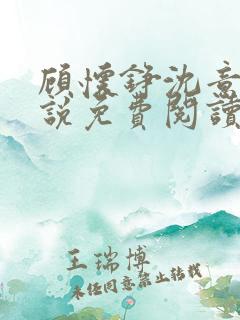 顾懷錚沈意
說免費閱讀
王瑞博
未经同意禁止转载